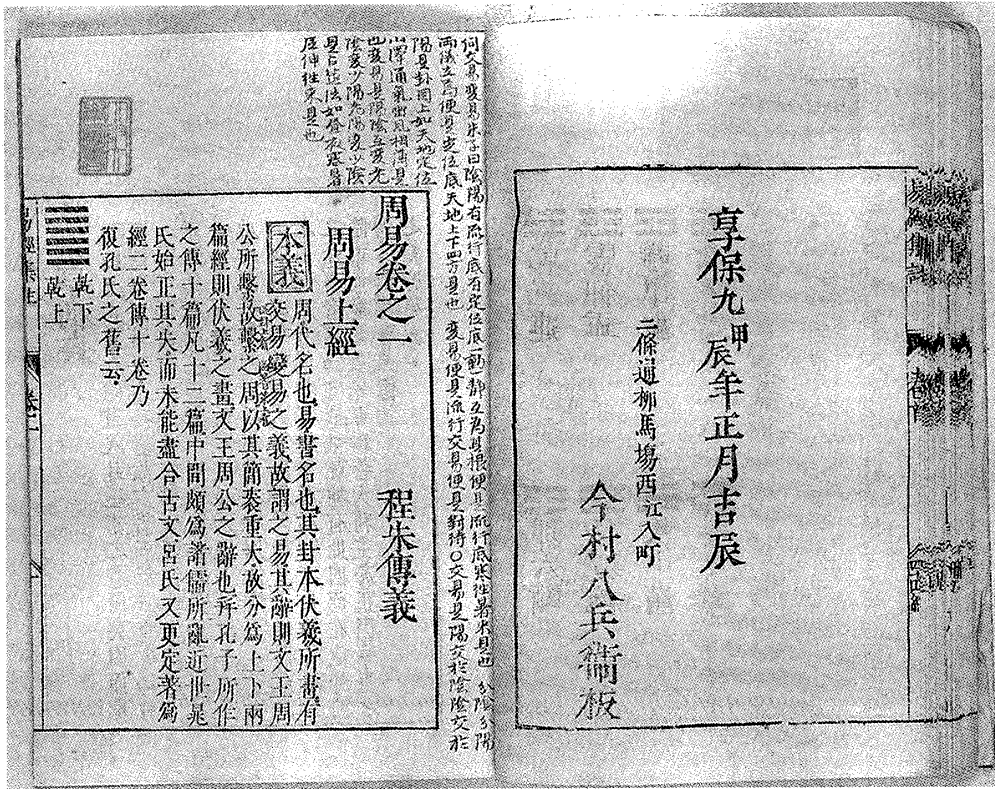 享保九甲辰年正月吉辰
二條通柳馬塲西江入町
今村八兵衞板
何交易變易朱子曰陰陽有流行底有定位底一動一靜互爲其根便是流行底寒往暑來是也 分陰分陽
兩儀立焉便是定位底天地上下四方是也 變易便是流行交易便是對待〇交易是陽交於陰陰交於
陽是卦圖上如天地定位
山澤通氣雷風相薄是
也變易是陽陰互變老
陰變少陽老陽變少陰
是占筮法如晝夜寒暑
屈伸往來是也
周易卷之一 程朱傳義
周易上經
本義 周代名也易書名也其卦本伏羲所畫有
交易變易之義故謂之易其辭則文王周
公所繫故繫之周以其簡袠重大故分爲上下兩
篇經則伏羲之畫文王周公之辭也幷孔子所作
之傳十篇凡十二篇中間頗爲諸儒所亂近世晁
氏始正其失而未能盡合古文呂氏又更定著爲
經二卷傳十卷乃
復孔氏之舊云
乾下
乾上
易經集註